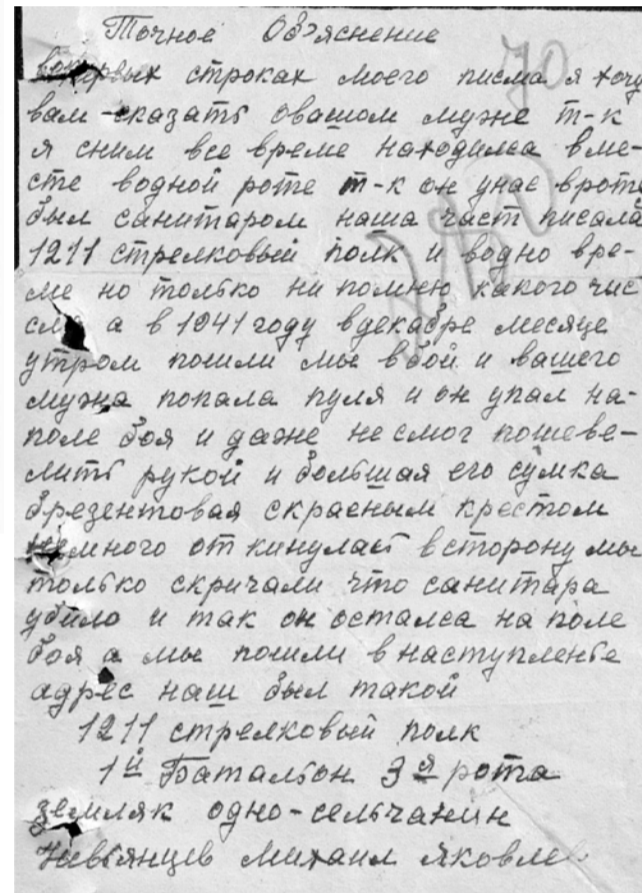 Точное Обяснение
70
вопервых строках моего писма я хочу
вам сказать овашом муже т-к
я сним все време находилса вме-
сте водной роте т-к он унас вроте
был санитаром наша част писала
1211 стрелковый полк и водно вре-
ме но только ни помню какого чис
сла а в 1941 году вдекабре месяце
утром пошли мы вбой и вашего
мужа попала пуля и он упал на-
поле боя и даже несмог пошеве-
лить рукой и большая его сумка
брезентовая скрасным крестом
немного от кинулась всторону мы
только скричали что санитара
убило и так он осталса на поле
боя а мы пошли внаступленье
адрес наш был такой
1211 стрелковый полк
1й Баталъон 3я рота
земляк одно-сельчанин
Невьянцев Михаил Яковле